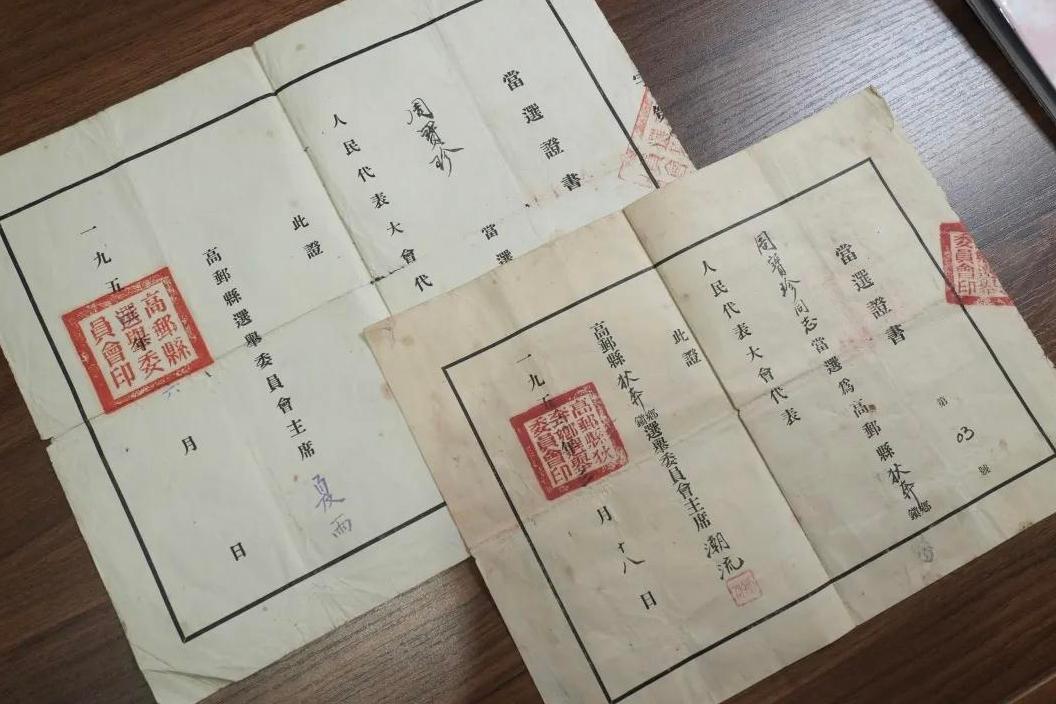 當選證書
周寶珍
當選
人民代表大會代
此證
高郵縣選舉委員會主席 夏雨
一九五 年 六 月 日
高郵縣選舉委員會印
當選證書
第 03 號
周寶珍同志當選爲高郵縣狄奔鄉鎮
人民代表大會代表
此證
高郵縣狄奔鄉鎮選舉委員會主席 潮流
一九五 年 月 十八 日
高郵縣狄奔鄉選舉委員會印
委員會印